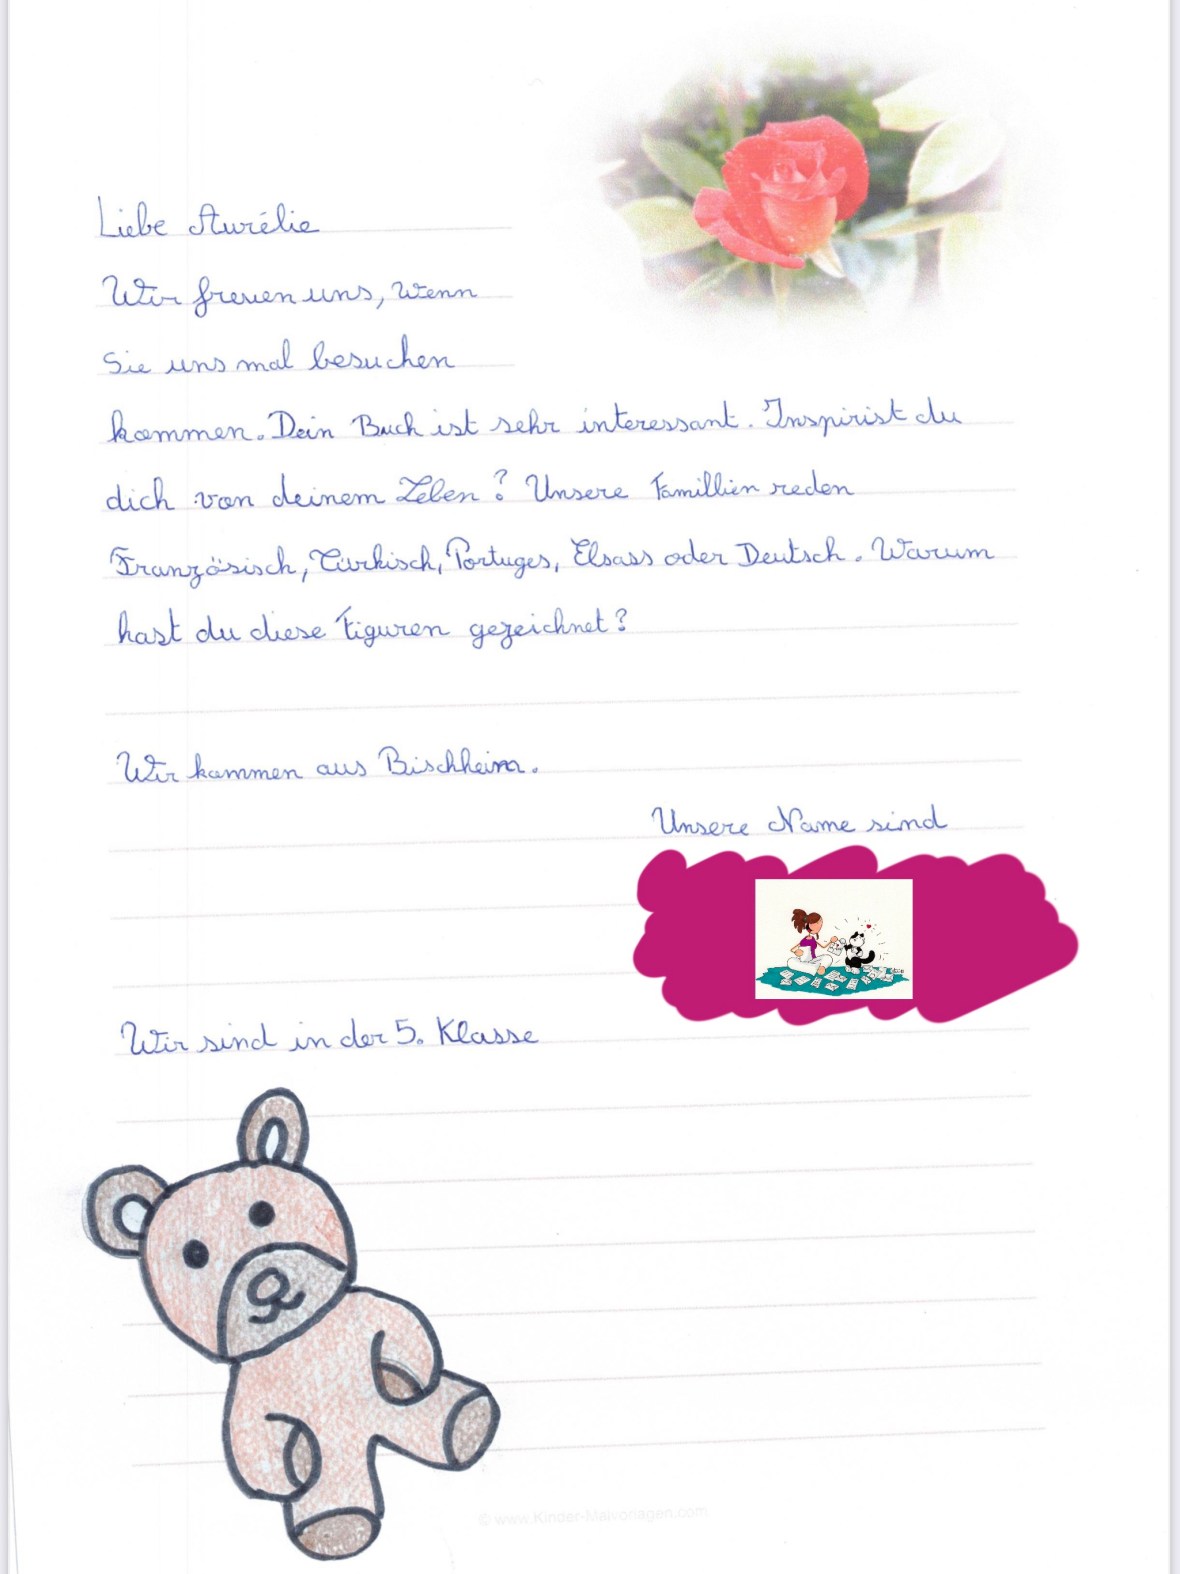 Liebe Aurélie
Wir freuen uns, wenn
Sie uns mal besuchen
kommen. Dein Buch ist sehr interessant. Inspirist du
dich von deinem Leben? Unsere Famillien reden
Französisch, Türkisch, Portuges, Elsass oder Deutsch. Warum
hast du diese Figuren gezeichnet?
Wir kommen aus Bischheim.
Unsere Name sind
Wir sind in der 5. Klasse
© www.Kinder-Malvorlagen.com